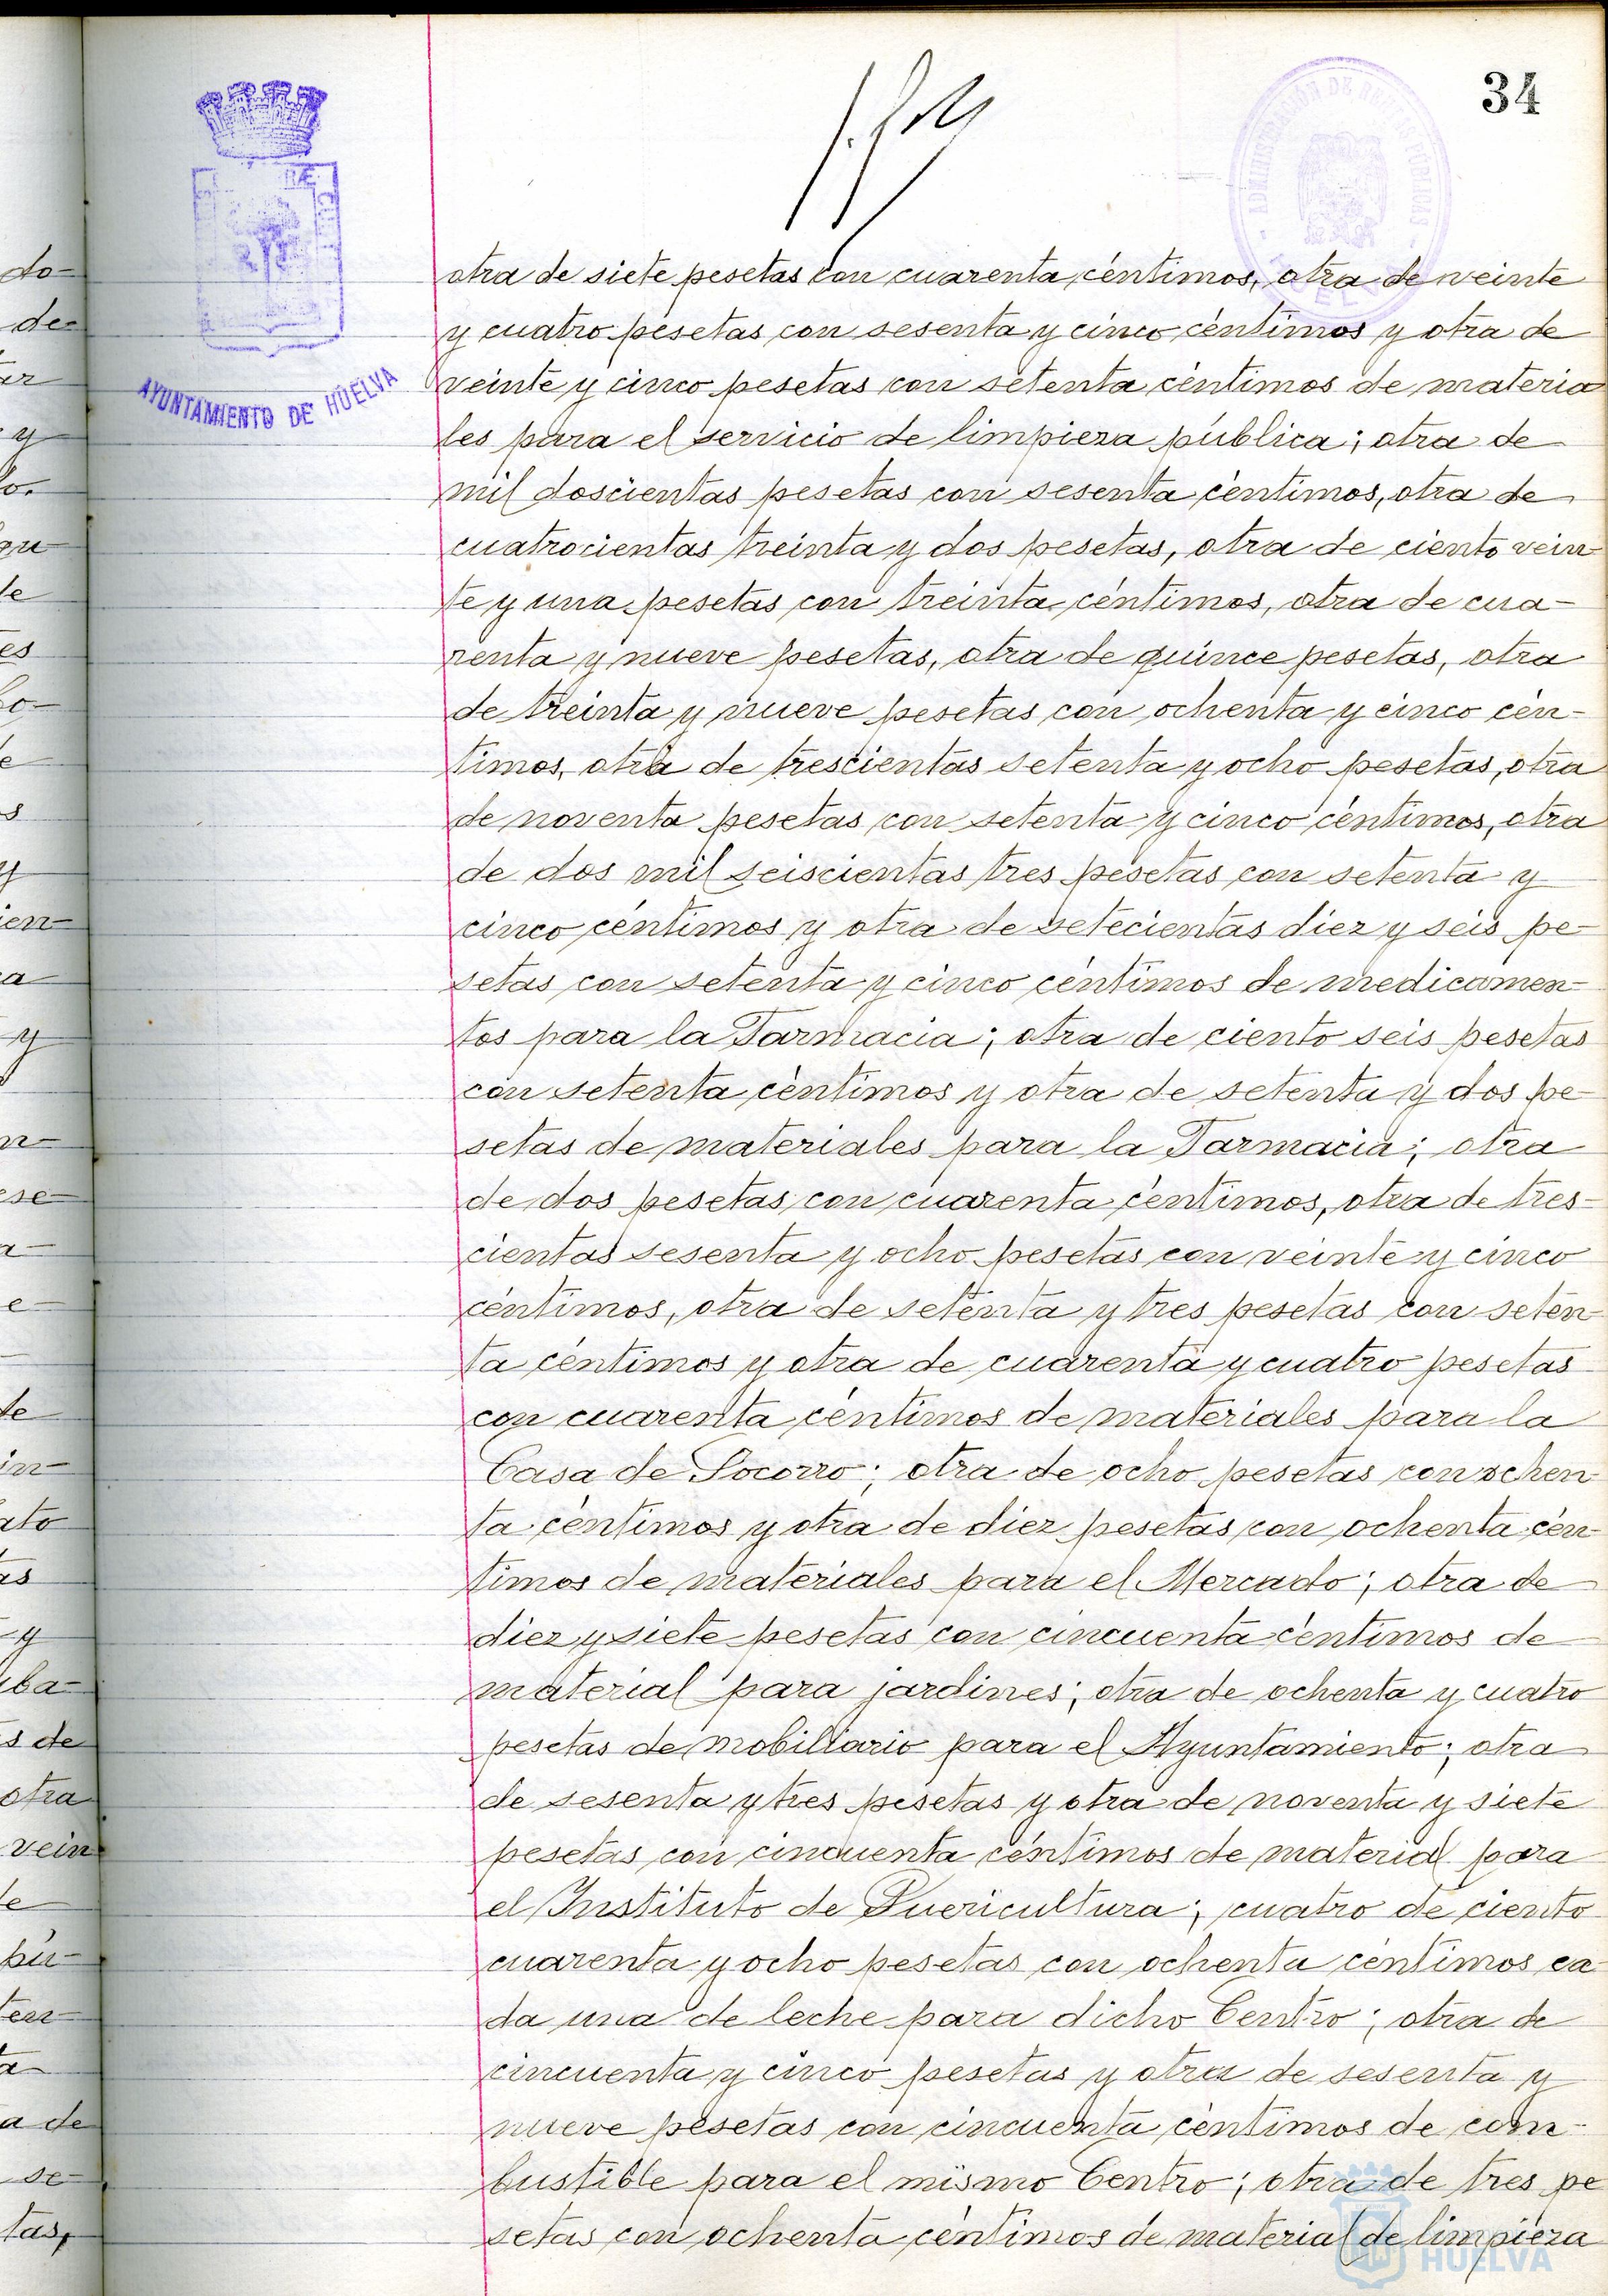 34
AYUNTAMIENTO DE HUELVA
otra de siete pesetas con cuarenta céntimos, otra de veinte
y cuatro pesetas con sesenta y cinco céntimos y otra de
veinte y cinco pesetas con setenta céntimos de materia
les para el servicio de limpieza pública; otra de
mil doscientas pesetas con sesenta céntimos, otra de
cuatrocientas treinta y dos pesetas, otra de ciento vein-
te y una pesetas con treinta céntimos, otra de cua-
renta y nueve pesetas, otra de quince pesetas, otra
de treinta y nueve pesetas con ochenta y cinco cén-
timos, otra de trescientas setenta y ocho pesetas, otra
de noventa pesetas con setenta y cinco céntimos, otra
de dos mil seiscientas tres pesetas con setenta y
cinco céntimos y otra de setecientas diez y seis pe-
setas con setenta y cinco céntimos de medicamen-
tos para la Farmacia; otra de ciento seis pesetas
con setenta céntimos y otra de setenta y dos pe-
setas de materiales para la Farmacia; otra
de dos pesetas con cuarenta céntimos, otra de tres-
cientas sesenta y ocho pesetas con veinte y cinco
céntimos, otra de setenta y tres pesetas con seten-
ta céntimos y otra de cuarenta y cuatro pesetas
con cuarenta céntimos de materiales para la
Casa de Socorro; otra de ocho pesetas con ochen-
ta céntimos y otra de diez pesetas con ochenta cén-
timos de materiales para el Mercado; otra de
diez y siete pesetas con cincuenta céntimos de
material para jardines; otra de ochenta y cuatro
pesetas de mobiliario para el Ayuntamiento; otra
de sesenta y tres pesetas y otra de noventa y siete
pesetas con cincuenta céntimos de material para
el Instituto de Puericultura; cuatro de ciento
cuarenta y ocho pesetas con ochenta céntimos ca-
da una de leche para dicho Centro; otra de
cincuenta y cinco pesetas y otra de sesenta y
nueve pesetas con cincuenta céntimos de com-
bustible para el mismo Centro; otra de tres pe
setas con ochenta céntimos de material de limpieza
HUELVA